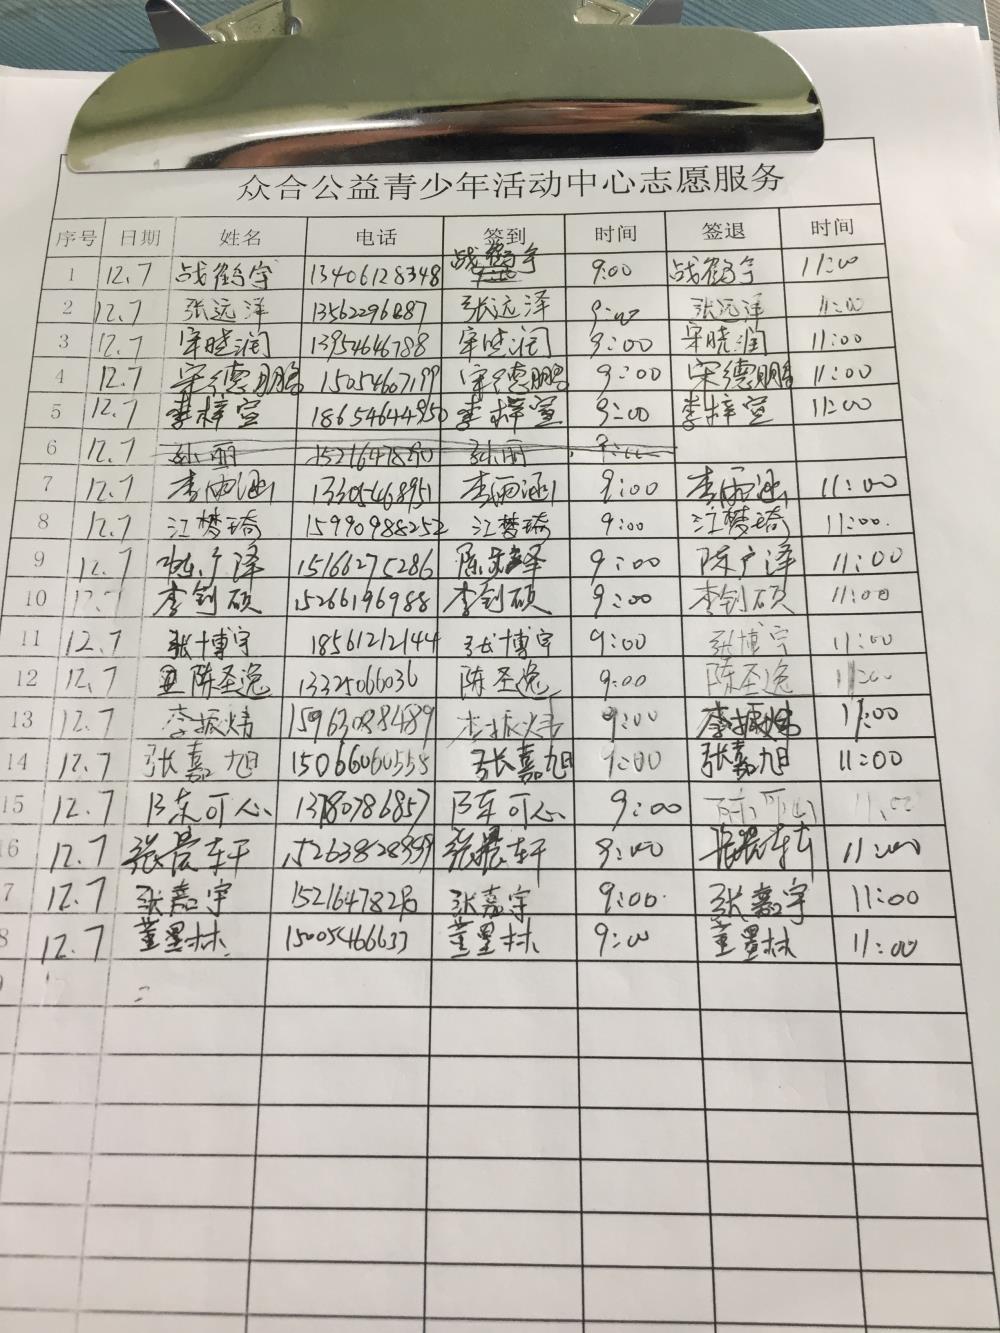 众合公益青少年活动中心志愿服务
序号 日期 姓名 电话 签到 时间 签退 时间
1 12.7 战鹤宇 13406128348 战鹤宇 9:00 战鹤宇 11:00
2 12.7 张远洋 张远泽 9:00 张远洋 11:00
3 12.7 宋晓润 13954646788 宋晓润 9:00 宋晓润 11:00
4 12.7 宋德鹏 15054607199 宋德鹏 9:00 宋德鹏 11:00
5 12.7 李梓萱 18654644950 李梓萱 9:00 李梓萱 11:00
6 12.7 孙丽 孙丽
7 12.7 李雨涵 13305468951 李雨涵 9:00 李雨涵 11:00
8 12.7 江梦琦 15990988252 江梦琦 9:00 江梦琦 11:00.
9 12.7 陈广泽 15166275286 9:00 陈广泽 11:00
10 12.7 李钊硕 15266196988 李钊硕 9:00 李钊硕 11:00
11 12.7 张博宇 18561212144 张博宇 9:00 张博宇 11:00
12 12.7 陈圣逸 13325066036 陈圣逸 9:00 陈圣逸 11:00
13 12.7 李振炜 15963088489 李振炜 9:00 李振炜 11:00
14 12.7 张嘉旭 15066060555 张嘉旭 9:00 张嘉旭 11:00
15 12.7 陈可心 13780786857 陈可心 9:00 11:00
16 12.7 张景轩 张景轩 9:00 张景轩 11:00
7 12.7 张嘉宇 张嘉宇 9:00. 张嘉宇 11:00
8 12.7 董墨林 董墨林 9:00 董墨林 11:00